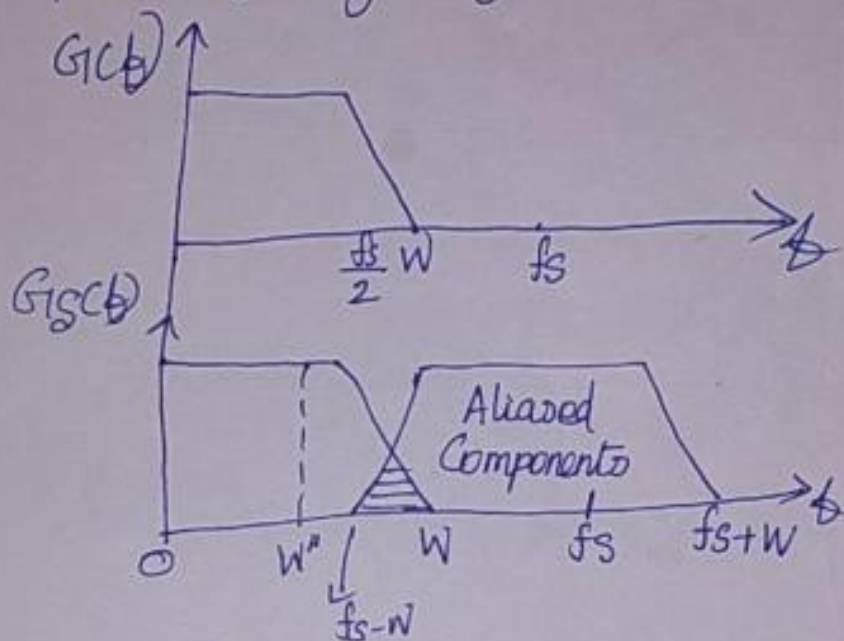 G(f)
fs/2 W fs f
Gs(f)
Aliased
Components
O W" W fs fs+W f
fs-W